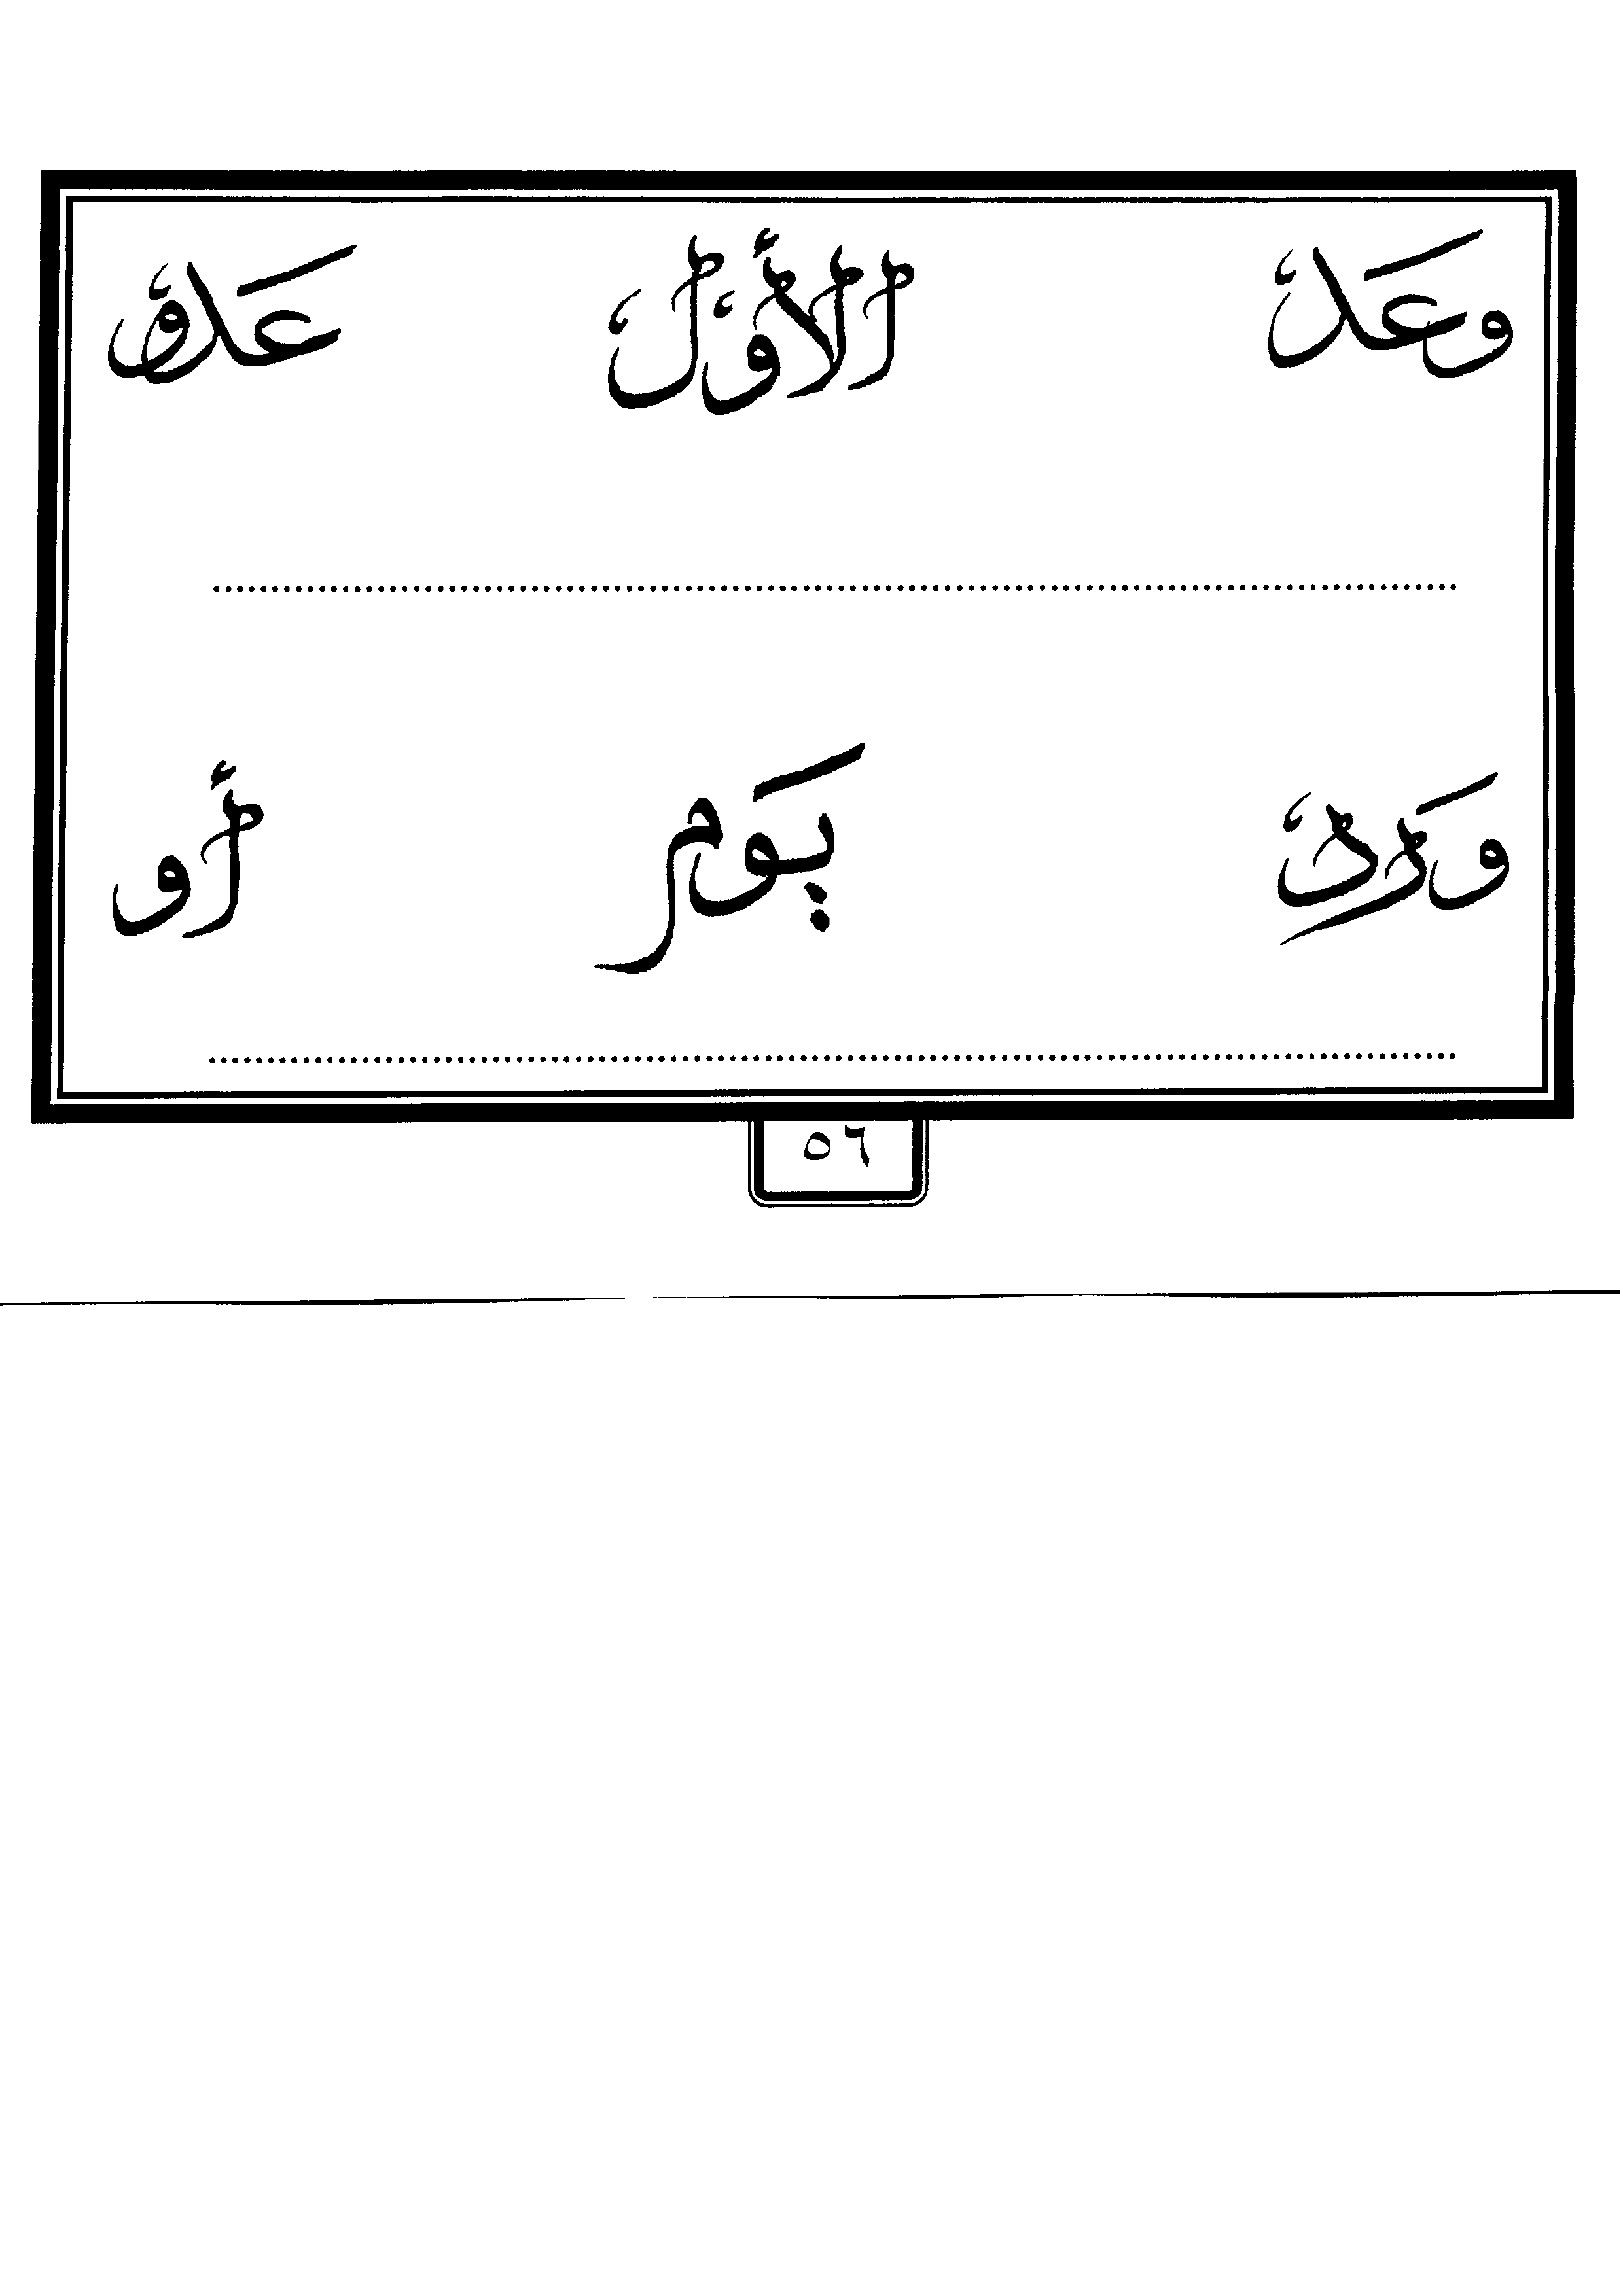 وعَد الأول عَدو
وَرد يَوم أو
٥٦